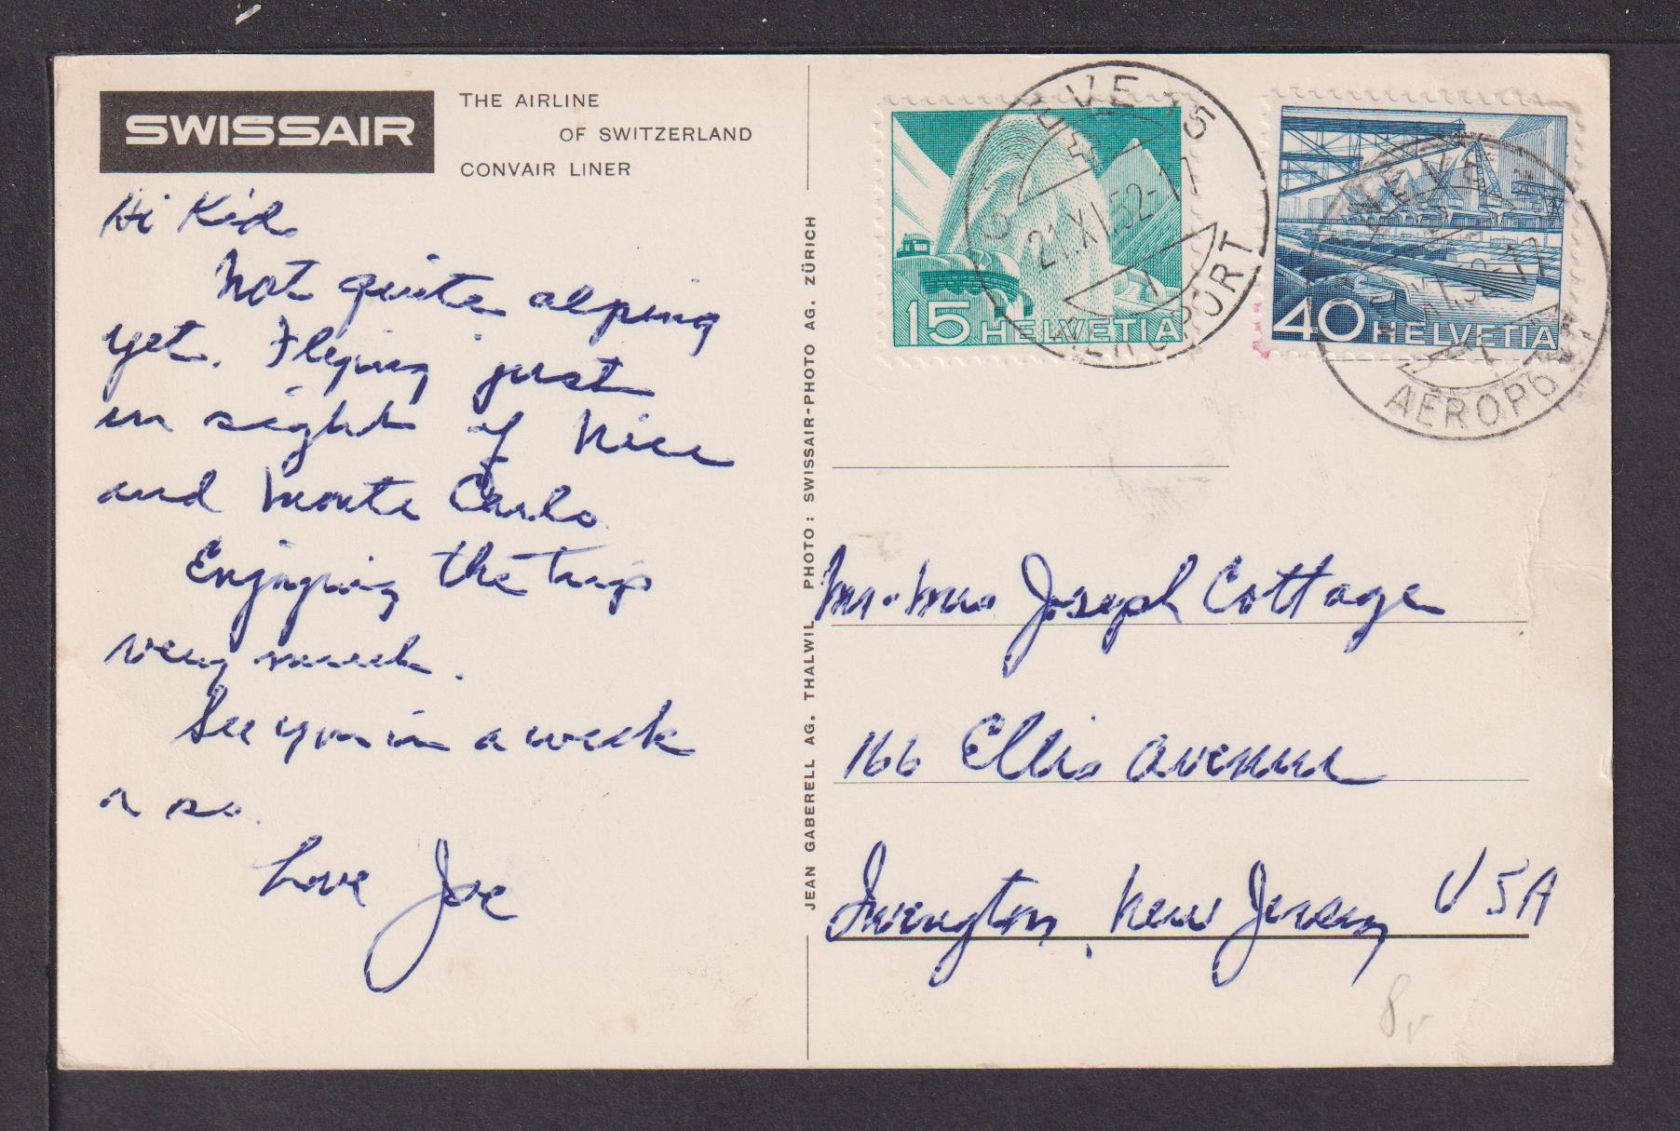 SWISSAIR
THE AIRLINE
OF SWITZERLAND
CONVAIR LINER
Hi Kid
Not quite alping
yet. Flying just
in sight of Nice
and Monte Carlo
Enjoying the trip
very much.
See you in a week
or so.
Love Joe
JEAN GABERELL AG. THALWIL PHOTO: SWISSAIR-PHOTO AG. ZÜRICH
15 HELVETIA
40 HELVETIA
GENÈVE 15
21.XI.52-17
AEROPORT
Mr. Mrs Joseph Cottage
166 Ellis Avenue
Irvington, New Jersey USA
8